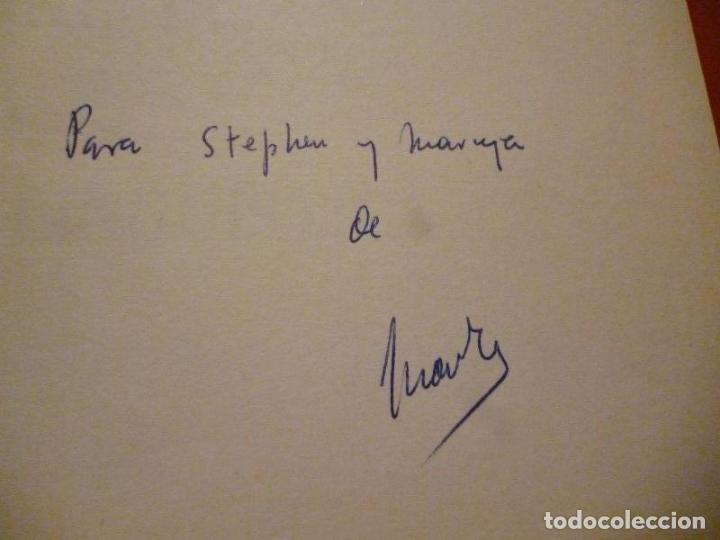 Para Stephen y Maruja
de
todocoleccion